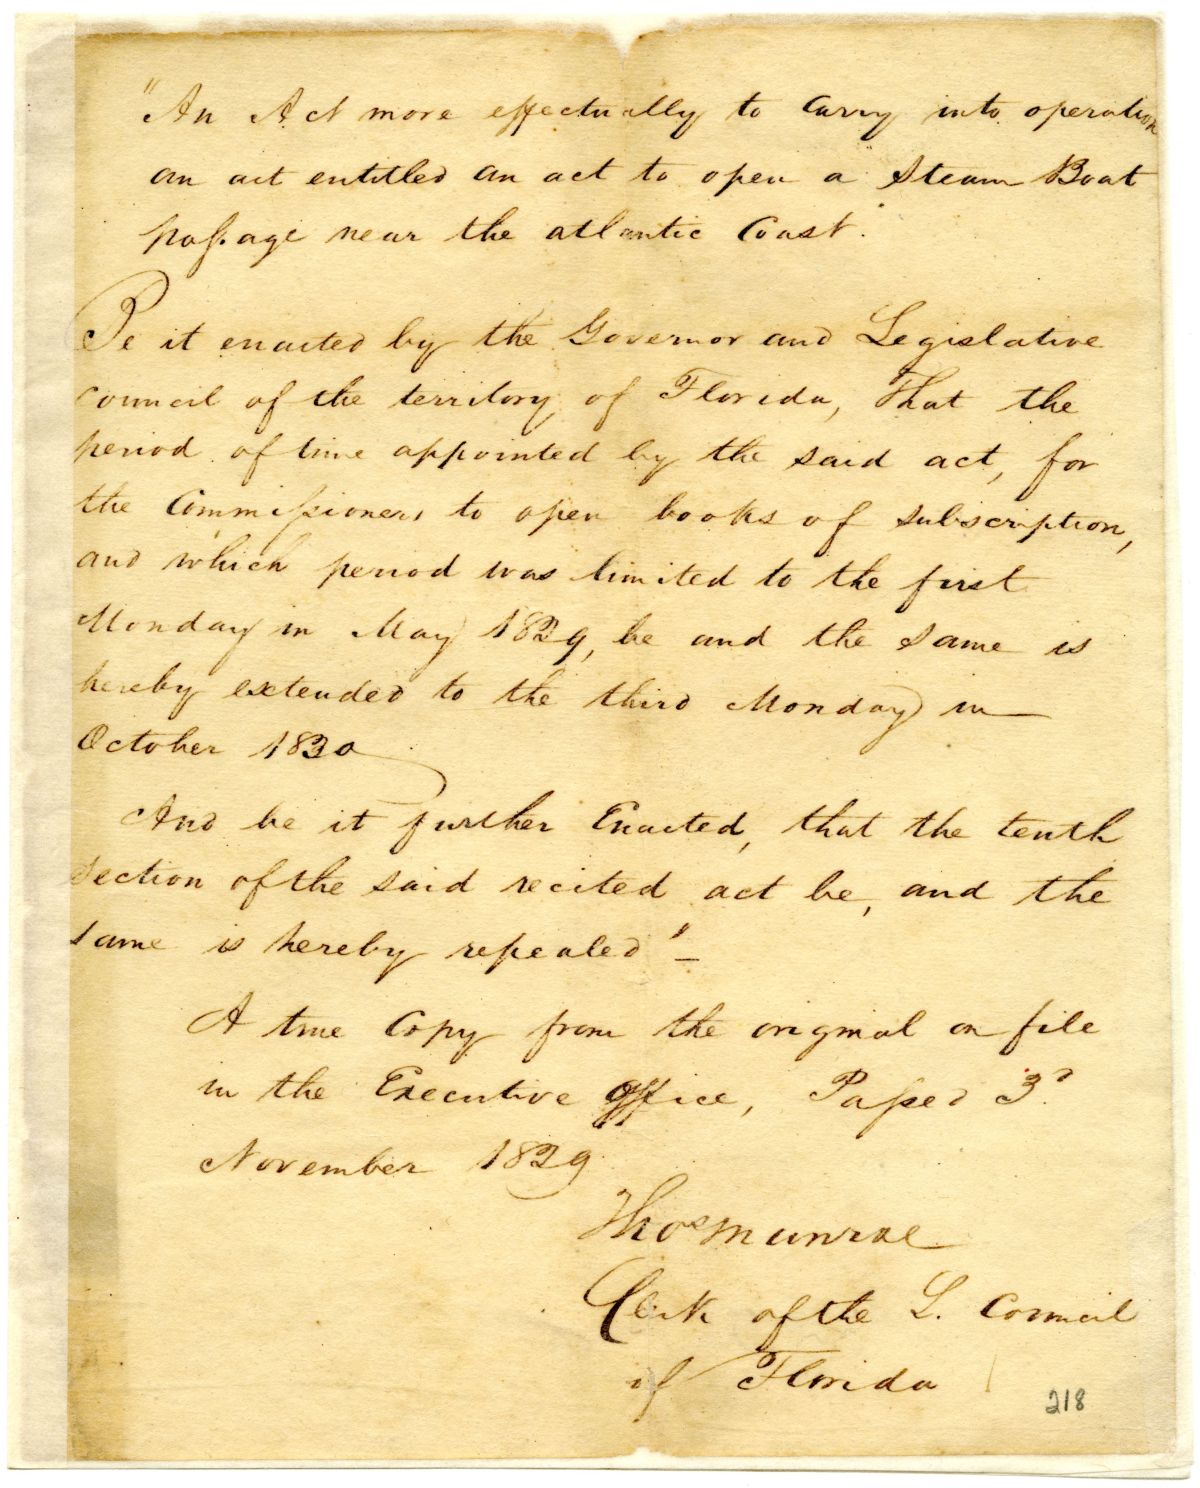 "An Act more effectually to carry into operation
an act entitled an act to open a Steam Boat
passage near the atlantic Coast."
Be it enacted by the Governor and Legislative
council of the territory of Florida, That the
period of time appointed by the said act, for
the Commissioners to open books of subscription,
and which period was limited to the first
Monday in May 1829, be and the same is
hereby extended to the third Monday in
October 1830
And be it further Enacted, that the tenth
section of the said recited act be, and the
same is hereby repealed" –
A true Copy from the original on file
in the Executive office, Passed 3d
November 1829.
Thos Munroe
Clerk of the L. Council
of Florida
218